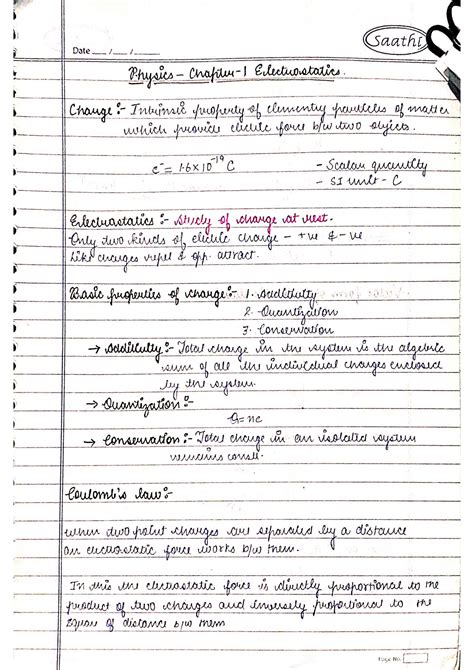 Saathi
Date __/__/__
Physics - Chapter-1 Electrostatics.
Charge :- Intrinsic property of elementry particles of matter
which provide electric force b/w two objects.
e⁻ = 1.6×10⁻¹⁹ C - Scalar quantity
- SI unit - C
Electrostatics :- study of charge at rest.
Only two kinds of electric charge - +ve & -ve
Like charges repel & opp. attract.
Basic properties of charge:- 1. Additivity
2. Quantization
3. Conservation
→ Additivity :- Total charge in the system is the algebric
sum of all the individual charges enclosed
by the system.
→ Quantization :-
Q=ne
→ Conservation :- Total charge in an isolated system
remains const.
Coulomb's law:-
when two point charges are separated by a distance
an electrostatic force works b/w them.
In this the electrostatic force is directly proportional to the
product of two charges and inversly proportional to the
square of distance b/w them
Page No.